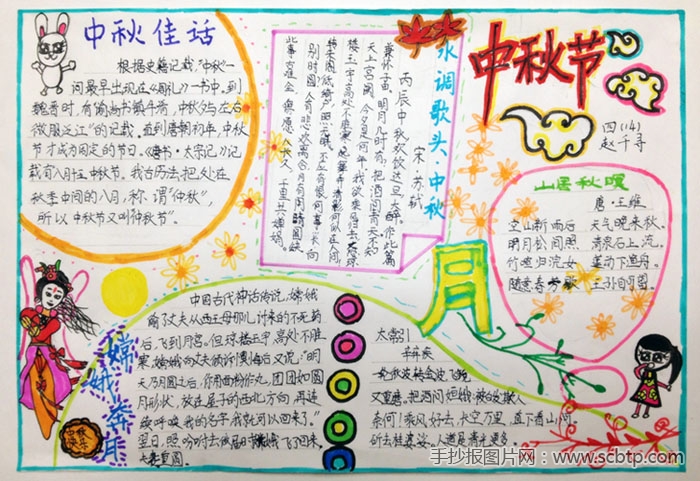 中秋佳话
根据史籍记载,“中秋一
词最早出现在《周礼》一书中,到
魏晋时,有“谕尚书镇牛渚,中秋夕与左右
微服泛江”的记载,直到唐朝初年,中秋
节才成为固定的节日。《唐书·太宗记》记
载有八月十五中秋节。我古历法,把处在
秋季中间的八月,称谓“仲秋”,
所以中秋节又叫“仲秋节”。
水调歌头·中秋
宋·苏轼
丙辰中秋欢饮达旦大醉作此篇
兼怀子由,明月几时有,把酒问青天不知
天上宫阙,今夕是何年我欲乘风归去
楼玉宇高处不胜寒起舞弄清影何似在人间
转朱阁低绮户照无眠不应有恨何事长向
别时圆人有悲欢离合月有阴晴圆缺
此事古难全但愿人长久千里共婵娟
中秋节
四(14)
赵千寻
山居秋暝
唐·王维
空山新雨后 天气晚来秋。
明月松间照 清泉石上流。
竹喧归浣女 莲动下渔舟。
随意春芳歇 王孙自可留。
月
嫦娥奔月
中秋快乐
中国古代神话传说,嫦娥
偷了丈夫从西王母那儿讨来的不死药
后,飞到月宫。但琼楼玉宇,高处不胜
寒,嫦娥向丈夫倾诉懊悔后又说:“明
天乃月圆之后,你用面粉作丸,团团如圆
月形状,放在屋子的西北方向,再连
续呼唤我的名字,我就可以回来了。”
翌日,照吩咐去做,届时嫦娥飞了回来,
夫妻重圆。
太常引
辛弃疾
一轮秋影转金波,飞镜
又重磨,把酒问姮娥:被白发欺人
奈何!乘风好去,长空万里,直下看山河
斫去桂婆娑,人道是清光更多
手抄报图片网:www.scbtp.com